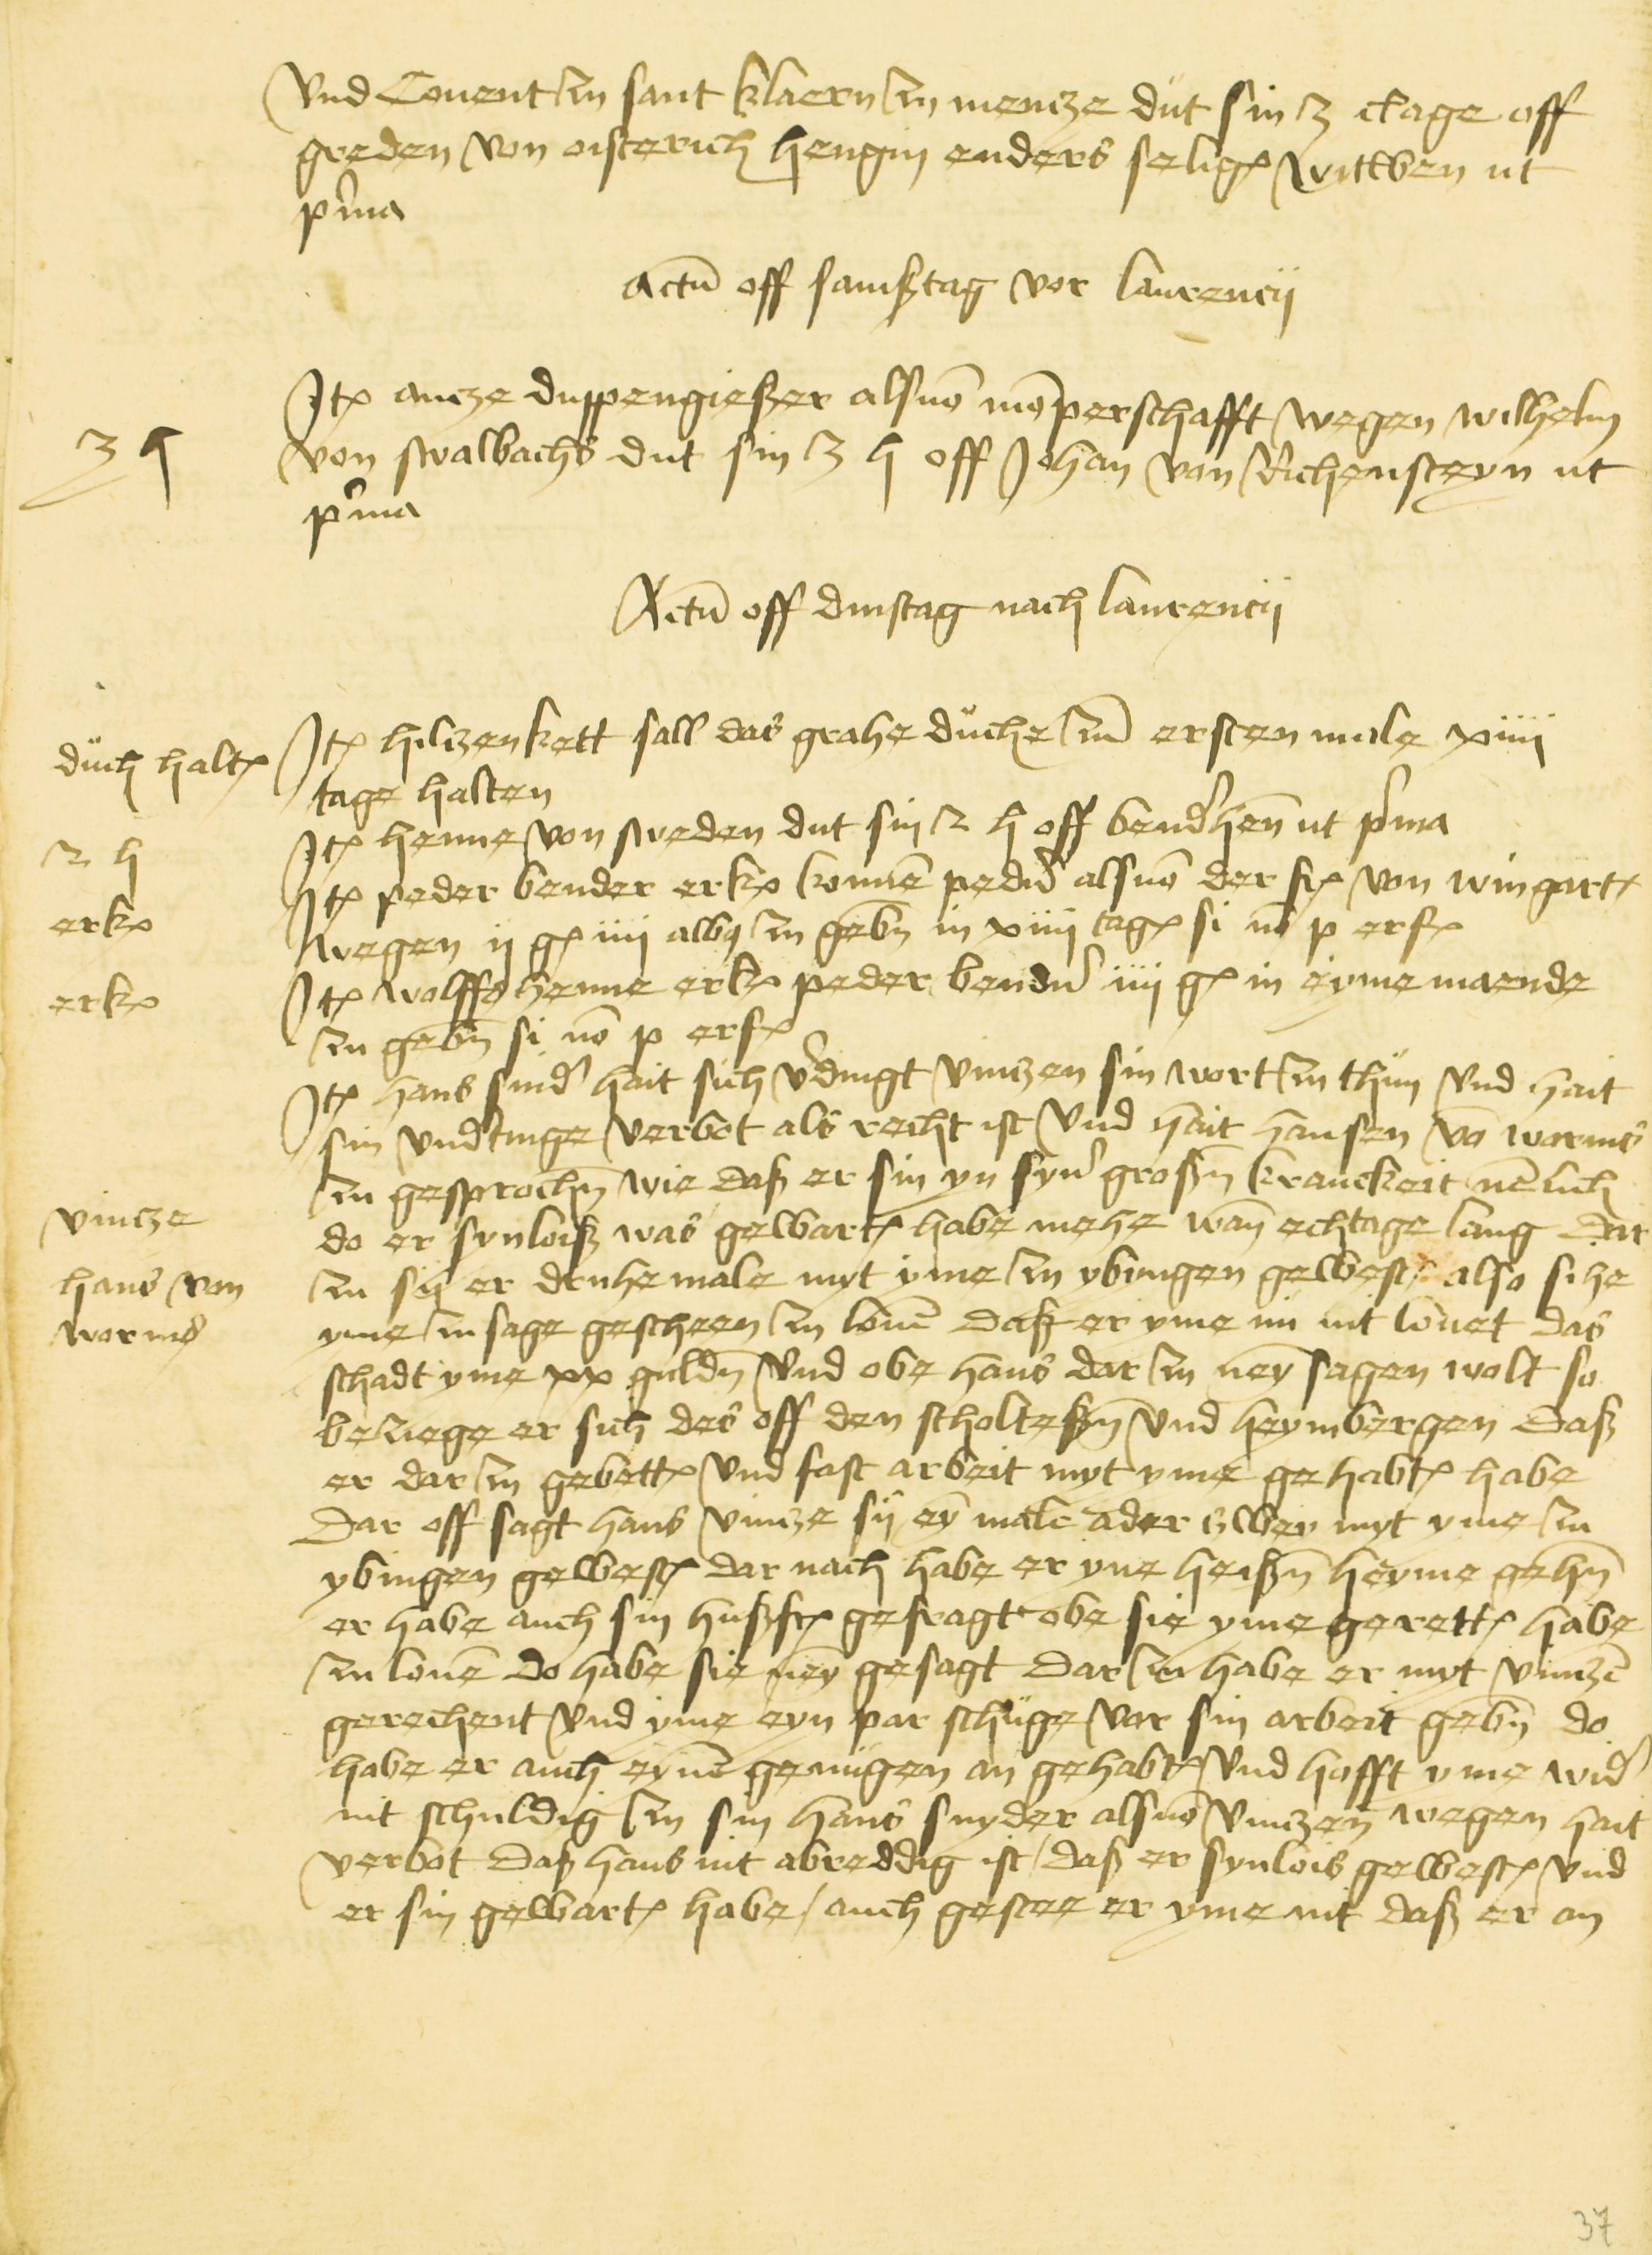 Vnd Conent zu sant klaern zu mencze dut sin 3 clage off
greden von oisterich hengin enders selig(en) wittwen ut
p(ri)ma
Actu(m) off samßtag vor laurencij
It(em) ancze duppengießer als vo(n) mo(m)perschafft wegen wilhelm
3 h
von swalbachs dut sin 3 h off Johan von Richensteyn ut
p(ri)ma
Actu(m) off dinstag nach laurencij
duch halt(en)
It(em) hilczenkett sall das grahe duche zu(m) ersten male xiiii
tage halten
2 h
It(em) henne von sweden dut sin 2 h off bend(er)he(n) ut p(ri)ma
erk(en)
It(em) peder bender erk(en) konne(n) ped(er) als vo(n) der f(rauwen) von wingart(en)
wegen ij g(ulden) iiii albus zu geb(e)n in xiiii tag(en) si no(n) p(fand) erf(olgt)
erk(en)
It(em) wolffs henne erk(en) peder bend(er) iiij g(ulden) in eyme maende
zu geb(e)n si no(n) p(fand) erf(olgt)
It(em) hans snid(er) hait sich v(er)dingt vinczen sin wort zu thun vnd hait
sin vnd(er)tinge verbot als recht ist vnd hait hansen vo(n) worms
zu gesproch(e)n wie daß er sin yn syn(er) groß(e)n kranckeit ne(m)lich
vincze
do er synloiß was gewart(en) habe mehe wan echtage lang Dar
hans von
zu sij er druhemale myt yme zu ybingen gewest also sihe
worms
yme zu sage gescheen zu lone(n) Daß er yme nu nit lonet das
schadt yme xx guld(e)n vnd obe hans dar zu ney(n) sagen wolt so
beziege er sich des off den scholteß(e)n vnd heymbergen Daß
er dar zu gebett(en) vnd fast arbeit myt yme gehabt habe
Dar off sagt hans vincze sij ey(n) male ader zwey myt yme zu
ybingen gewest dar nach habe er yne heiß(e)n heyme geh(e)n
er habe auch sin hußf(rauwe) gefragt obe sie yme gerett habe
zu lone(n) do habe sie ney(n) gesagt Dar zu habe er myt vincze(n)
gerechent vnd yme eyn par schuge vor sin arbeit geb(e)n do
habe er auch eyne(n) genugen an gehabt vnd hofft yme wid(er)
nit schuldig zu sin hans snyder als vo(n) vinczen wegen hait
verbot Daß hans nit abreddig ist / daß er synlois gewest vnd
er sin gewart habe / auch gestee er yme nit daß er an
37